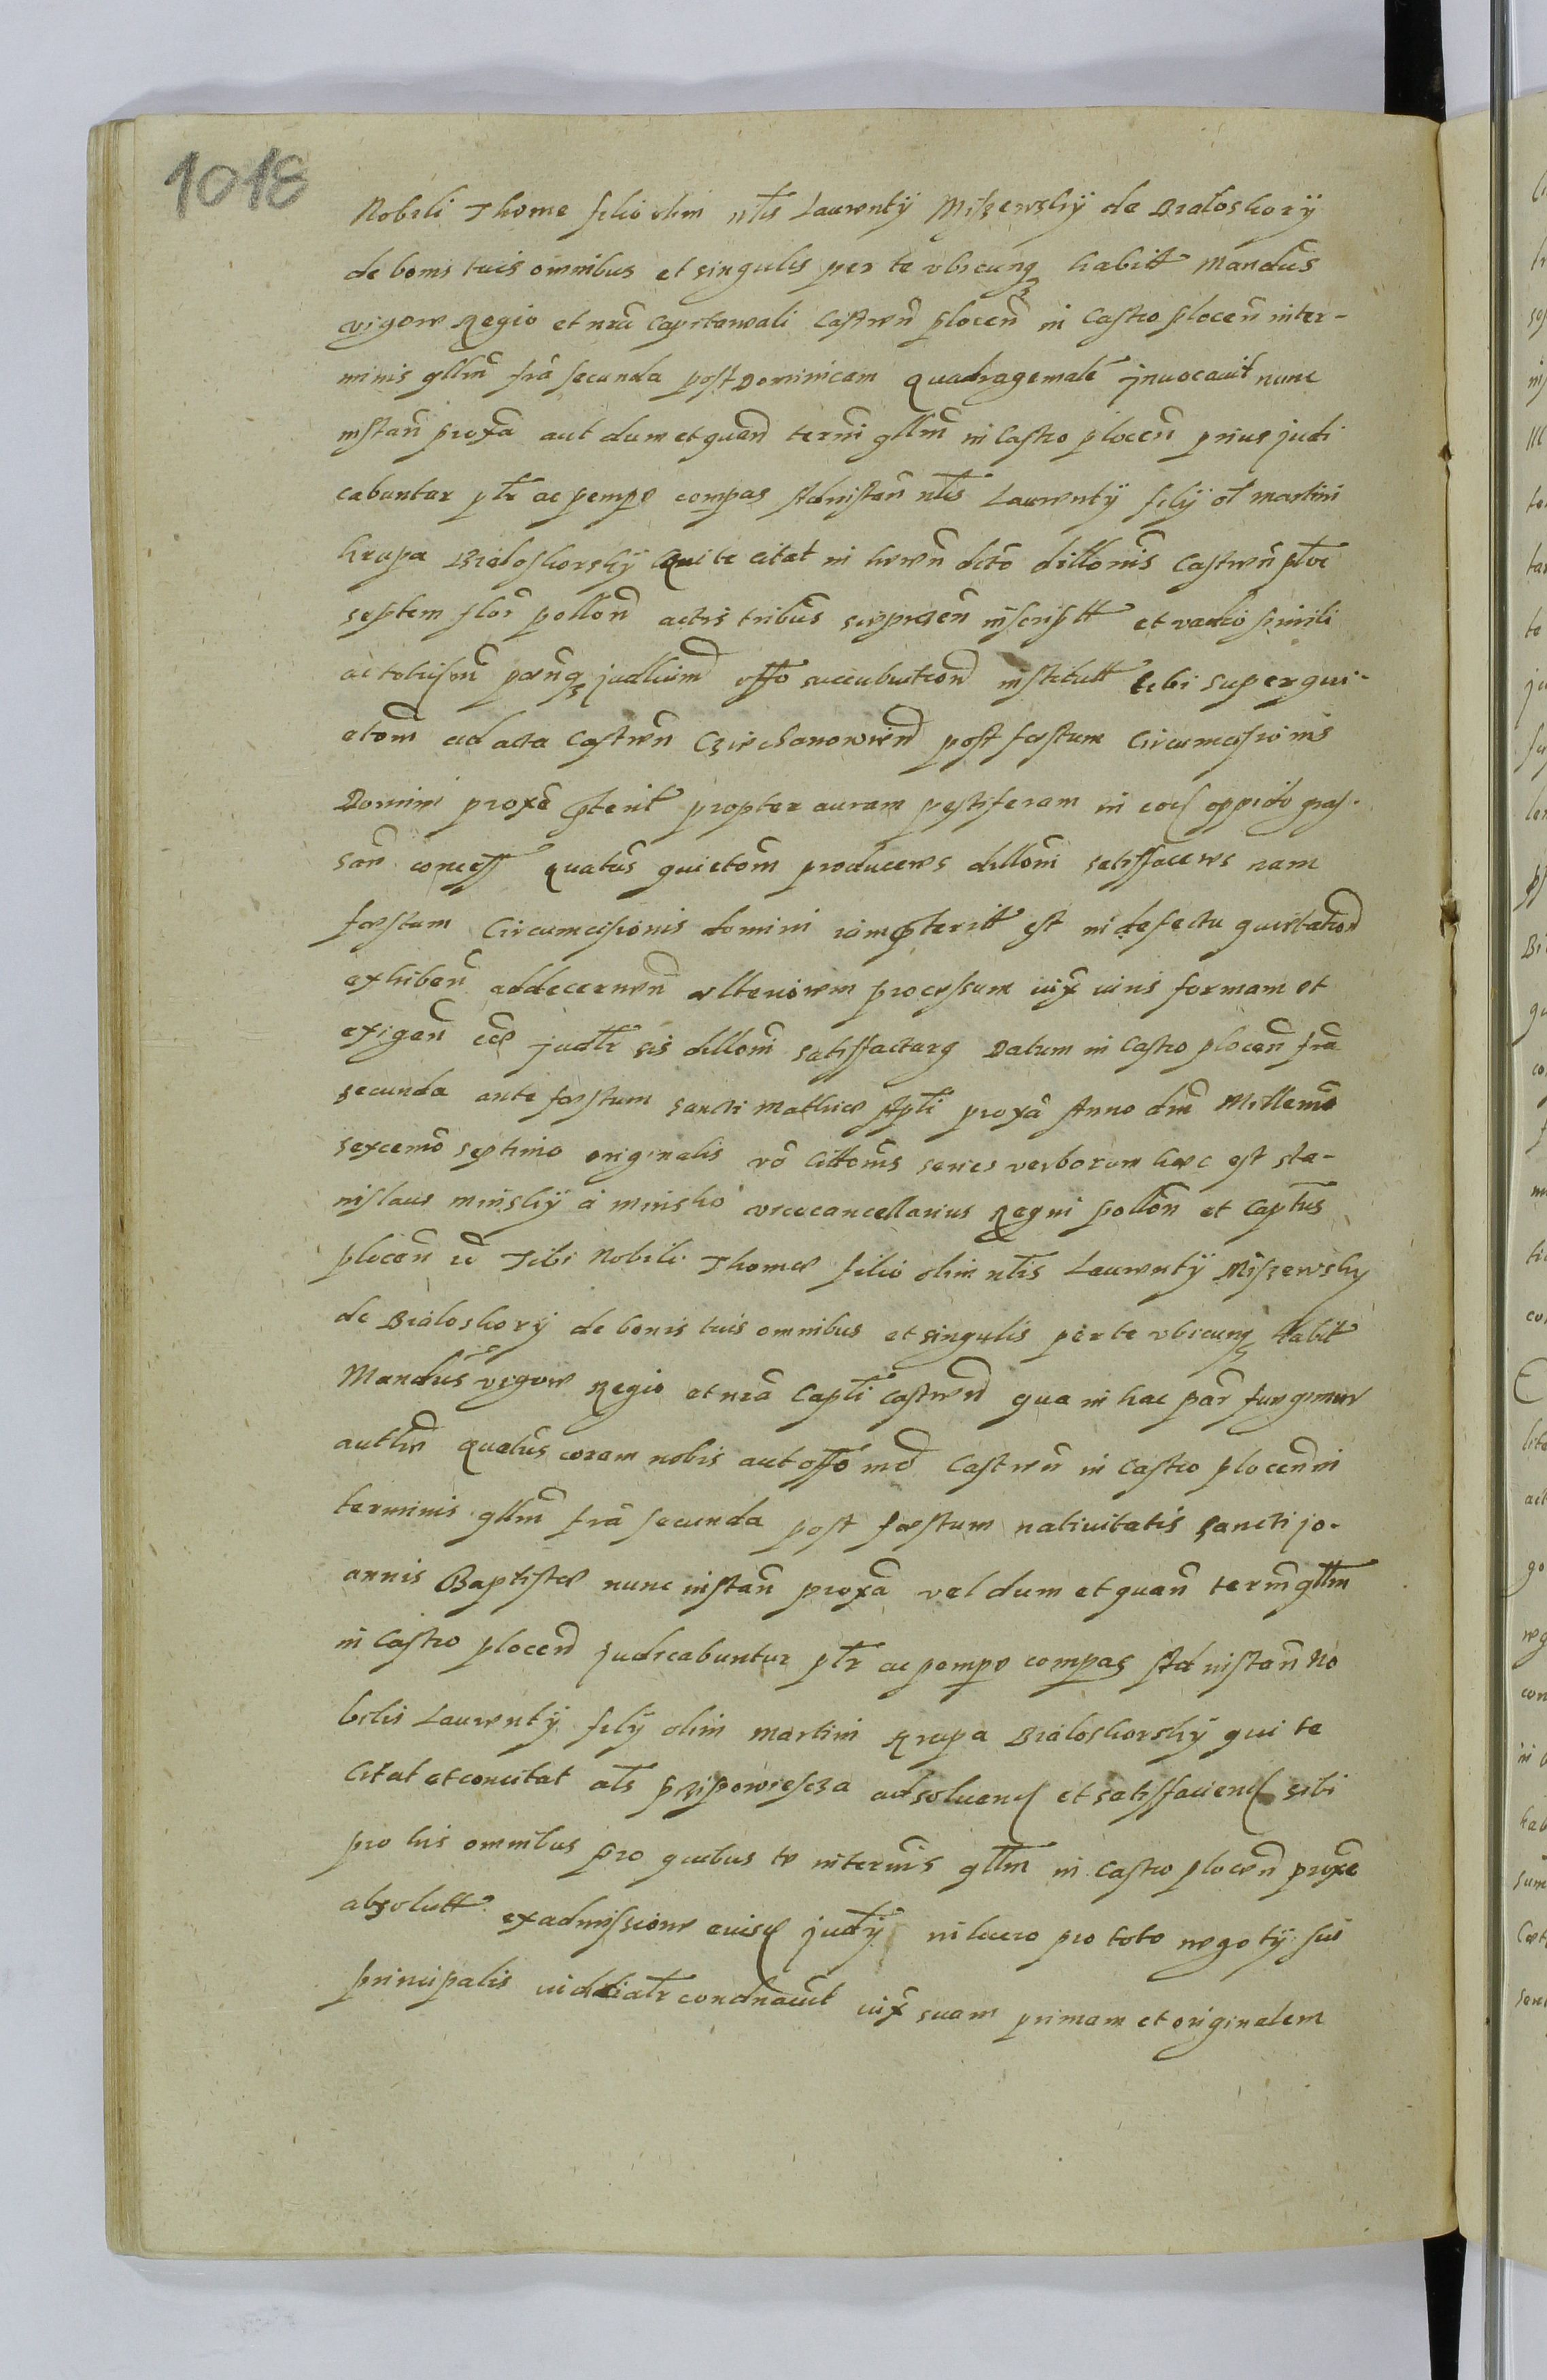 1018
Nobili Thome filio olim nlis Laurenty Miszewsky de Bialoskory
de bonis tuis omnibus et singulis per te vbicunq habitt Mandus
vigore Regio et nrae Capitaneali Castren plocen in Castro plocen inter-
minis gllm fria secunda post Dominicam Quadragemale jnuocauit nunc
instan proxa aut dum et quan termi gllm in Castro plocen prius judi
cabuntur pltr ac pempe compas Ad instan nlis Laurenty fily ol martini
krupa Bialoskorsky qui te citat in dcto dillonis Castren ploc
septem flor pollon actis tribus inscriptt et vadio simili
ac judlium offo succubution institutt tibi super qui-
etom ad acta Castren Cziechanowien post festum Circumcisionis
Domini proxe pterit propter auram pestiferam in eod oppido gras-
san concess quatus quietom produceres dilloni satisfaceres nam
festum Circumcisionis domini iam pteritt est in defectu quietation
exhiben addecernen vlteriorem processum iux iuris formam et
exigen judlr sis dilloni satisfacturg Datum in Castro plocen fria
secunda ante festum sancti Mathiae Apli proxa Anno dni Millemo
sexcemo septimo originalis vo cittonis series verborum haec est sta-
nislaus minsky a minsko vicecancellarius Regni pollon et Captus
plocen Tibi Nobili Thomae filio olim nlis Laurenty Miszewsky
de Bialoskory de bonis tuis omnibus et singulis per te vbicunq habit
Mandus vigore Regio et nra Capli castren qua in hac par fungimur
authte quatus coram nobis aut offo Castren in Castro plocen in
terminis gllm fria secunda post festum natiuitatis sancti jo-
annis Baptistae nunc instan proxa vel dum et quan term gllm
in Castro plocen judicabuntur pltr ac pempe compas Ad instan No
bilis Laurenty fily olim Martini Krupa Bialoskorsky qui te
Citat et concitat als przipowiescza ad soluend et satisfaciend sibi
pro his omnibus pro quibus te in termis gllm in Castro plocen proxe
absolutt ex admissione eiusd judy in lucro pro toto negoty sui
principalis condnauit iux suam primam et originalem